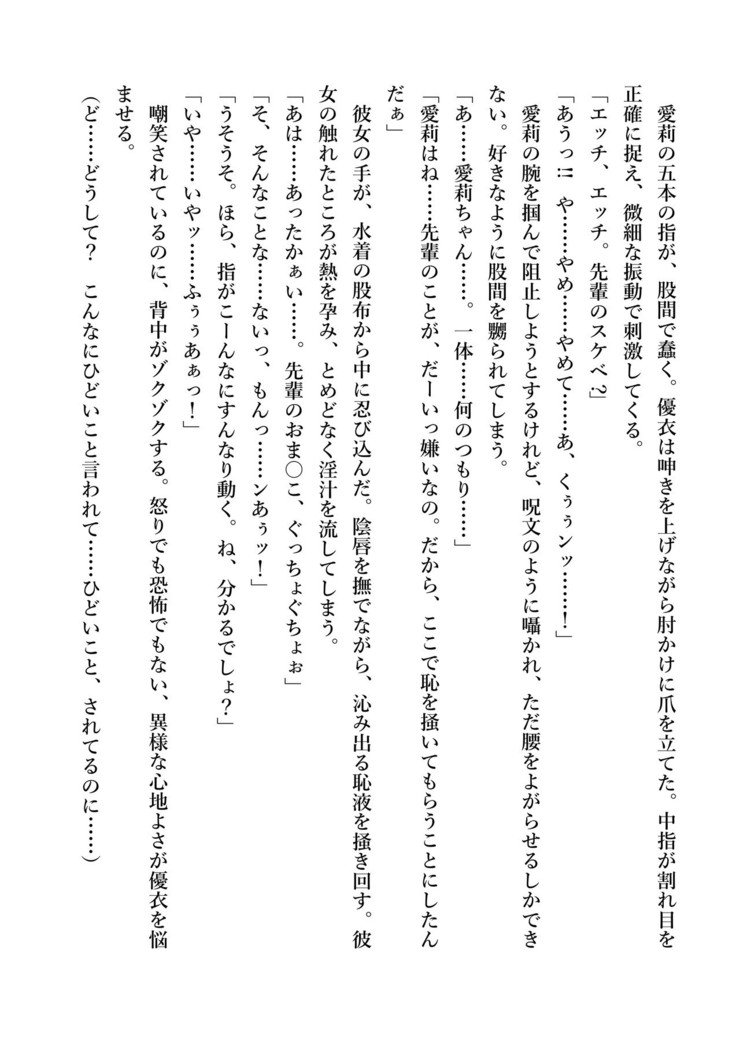 愛莉の五本の指が、股間で蠢く。優衣は呻きを上げながら肘かけに爪を立てた。中指が割れ目を
正確に捉え、微細な振動で刺激してくる。
「エッチ、エッチ。先輩のスケベ?」
「あうっ!!　や……やめ……やめて……あ、くぅぅンッ……！」
　愛莉の腕を掴んで阻止しようとするけれど、呪文のように囁かれ、ただ腰をよがらせるしかでき
ない。好きなように股間を嬲られてしまう。
「あ……愛莉ちゃん……。一体……何のつもり……」
「愛莉はね……先輩のことが、だーいっ嫌いなの。だから、ここで恥を掻いてもらうことにしたん
だぁ」
　彼女の手が、水着の股布から中に忍び込んだ。陰唇を撫でながら、沁み出る恥液を掻き回す。彼
女の触れたところが熱を孕み、とめどなく淫汁を流してしまう。
「あは……あったかぁい……。先輩のおま〇こ、ぐっちょぐちょぉ」
「そ、そんなことな……ないっ、もんっ……ンあぅッ！」
「うそうそ。ほら、指がこーんなにすんなり動く。ね、分かるでしょ？」
「いや……いやッ……ふぅぅあぁっ！」
　嘲笑されているのに、背中がゾクゾクする。怒りでも恐怖でもない、異様な心地よさが優衣を悩
ませる。
（ど……どうして？　こんなにひどいこと言われて……ひどいこと、されてるのに……）